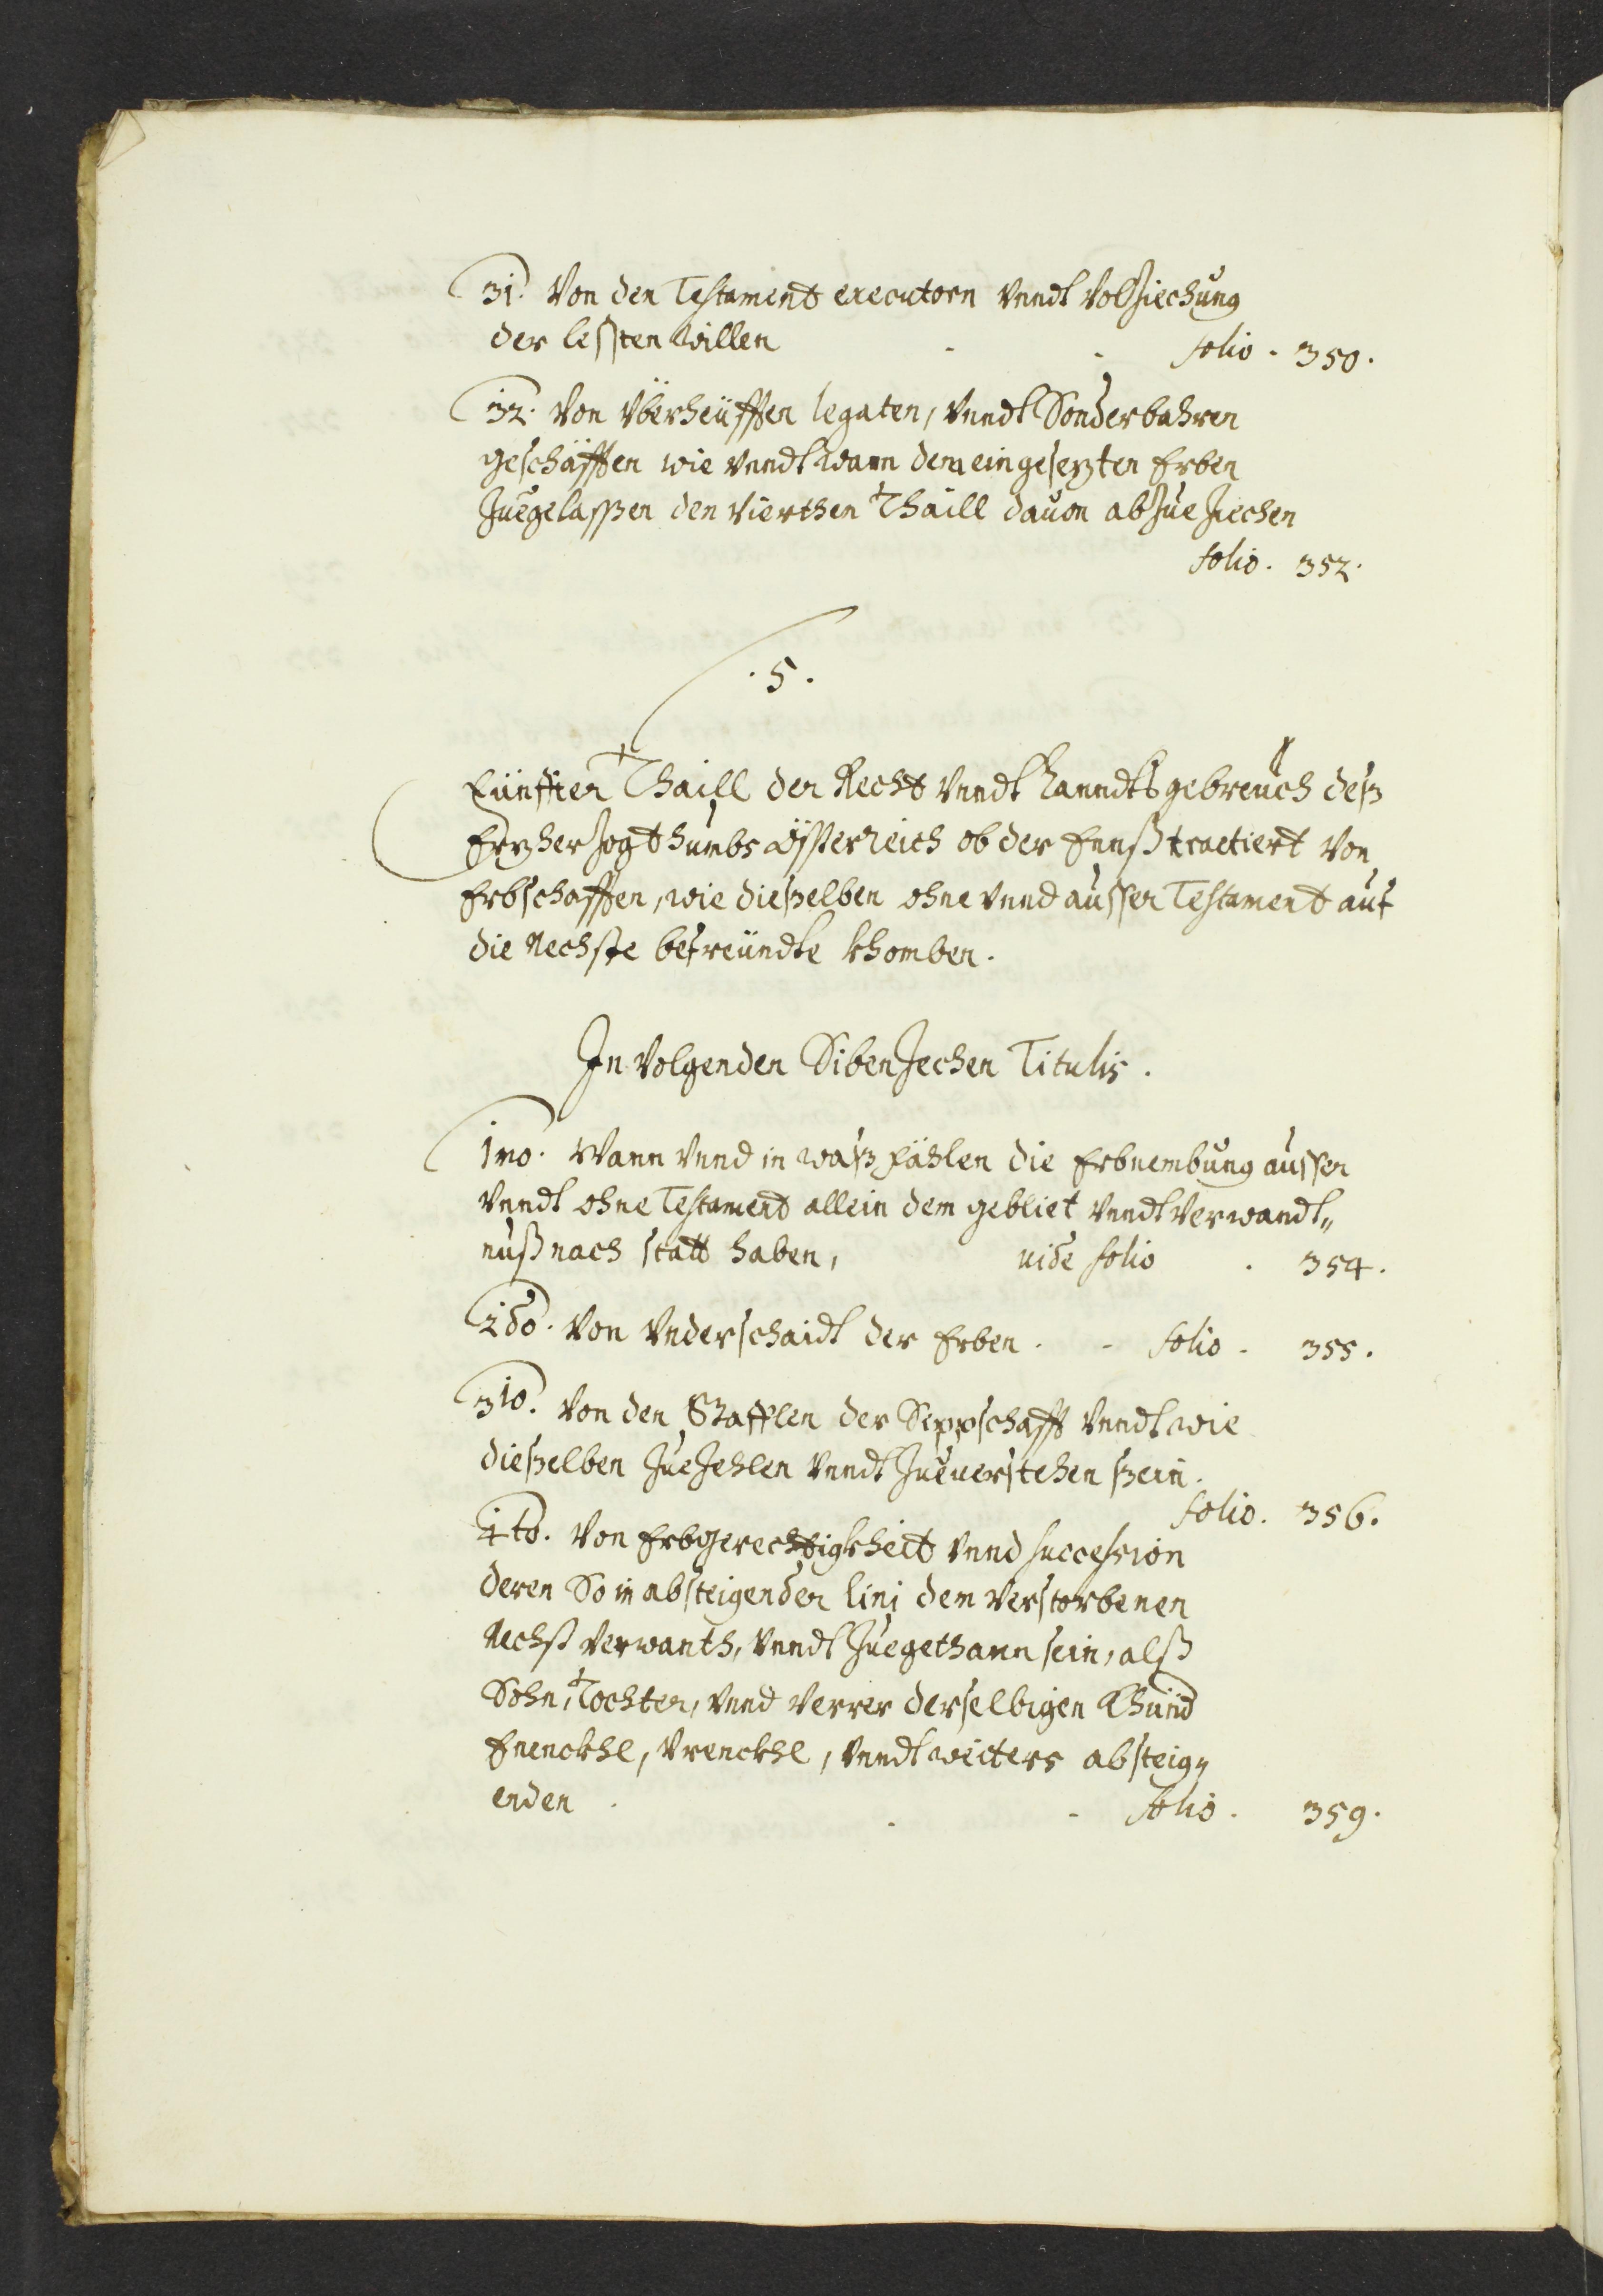 31. Von den Testament executorn vnndt Volziechung
der lessten willen - - folio . 350.
32. Von Vberheüfften legaten, vnndt Sonderbahren
geschäfften wie vnndt wann dem eingesezten Erben
Zuegelassen den Vierthen Thaill dauon abzueziechen
folio . 352.
. 5 .
Fünffter Thaill der Recht vnndt Lanndtsgebreuch deß
Erzherzogthumbs össterreich ob der Ennß tractiert von
Erbschafften, wie dieselben ohne vnnd ausser Testament auf
die Nechste befreündte khomben.
In Volgenden Sibenzechen Titulis.
1mo. Wann vnnd in waß fählen die Erbnembung ausser
vnndt ohne Testament allein dem gebliet vnndt verwandt„
nuß nach statt haben, vide folio . 354.
2do. Von Vnderschaidt der Erben . - folio . 355.
3io. Von den Stafflen der Sippschafft vnndt wie
dieselben zuezehlen vnndt zueuerstehen sein.
folio . 356.
4to. Von Erbgerechtigkheit vnnd succession
deren So in absteigender lini dem Verstorbenen
Nechst verwanth, vnndt zuegethann sein, alß
Sohn, Tochter, vnnd verrer derselbigen Khünd
Enenckhl, Vrenckhl, vnndt weiters absteig„
enden . . - folio . 359.